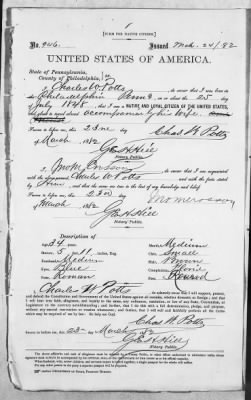 [FORM FOR NATIVE CITIZEN.]
No. 946. Issued Mch. 24/82
UNITED STATES OF AMERICA.
State of Pennsylvania,
County of Philadelphia, ss.
I, Charles W Potts, do swear that I was born in
Philadelphia Penna on the 25 day of
July 1848, that I am a NATIVE AND LOYAL CITIZEN OF THE UNITED STATES,
accompanied by his wife.
Sworn to before me, this 23rd day
of March 1882 Chas W Potts
Geo H Hill
Notary Public.
I, do swear that I am acquainted
with the above-named Charles W Potts and with the facts stated
by him, and that the same are true to the best of my knowledge and belief.
Sworn to before me, this 23rd day
of March 1882
Geo H Hill
Notary Public.
Description of
Age, 34 years. Mouth, Medium
Stature, 5 11 inches, Eng. Chin, Small
Forehead, Medium Hair, Brown
Eyes, Blue Complexion,
Nose, Roman Face, Round
I, Charles W Potts, do solemnly swear that I will support, protect,
and defend the Constitution and Government of the United States against all enemies, whether domestic or foreign; and that
I will bear true faith, allegiance, and loyalty to the same, any ordinance, resolution, or law of any State, Convention, or
Legislature to the contrary notwithstanding; and further, that I do this with a full determination, pledge, and purpose,
without any mental reservation or evasion whatsoever; and further, that I will well and faithfully perform all the duties
which may be required of me by law: So help me God.
Chas W Potts
Sworn to before me, this 23 day of March 1882
Geo H Hill
Notary Public.